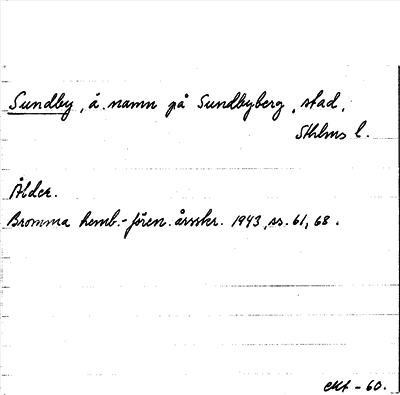 Sundby, ä. namn på Sundbyberg, stad,
Sthlms l.
Ålder.
Bromma hemb.-fören. årsskr. 1943, ss. 61, 68.
- 60.